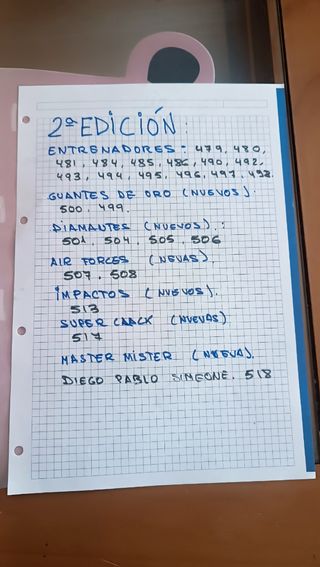 2ª EDICIÓN:
ENTRENADORES - 479, 480,
481, 484, 485, 486, 490, 492,
493, 494, 495, 496, 497, 498
GUANTES DE ORO (NUEVOS).
500, 499.
DIAMANTES (NUEVOS).:
501, 504, 505, 506
AIR FORCES (NEVAS).
507, 508
IMPACTOS (NUEVOS).
513
SUPER CRACK (NUEVOS)
517
MASTER MISTER (NUEVA).
DIEGO PABLO SIMEONE. 518